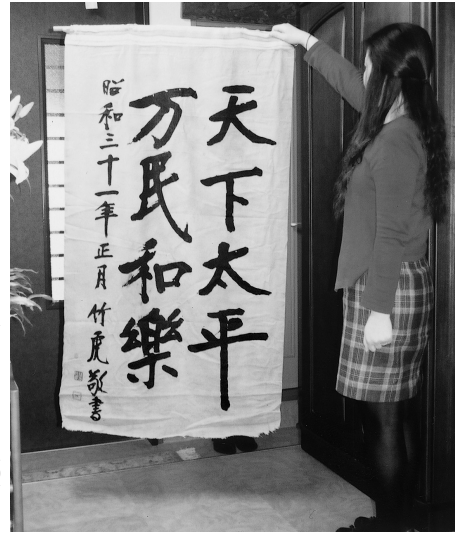 天下太平
万民和樂
昭和三十一年正月 竹虎敬書